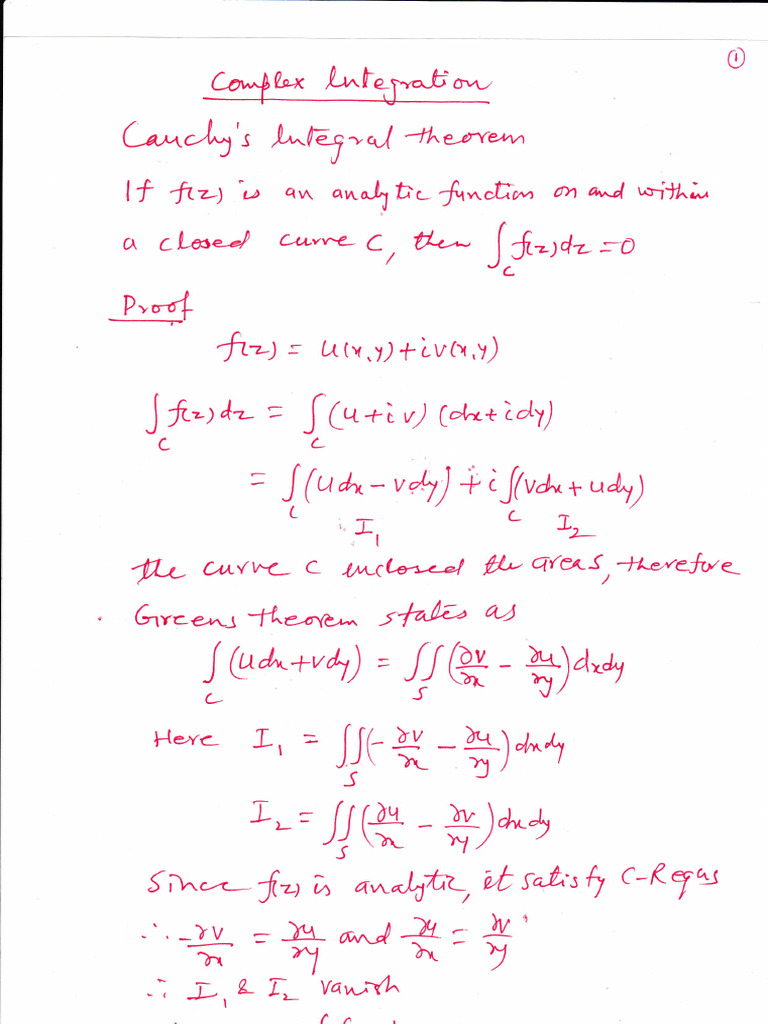 ①
Complex Integration
Cauchy's Integral theorem
If f(z) is an analytic function on and within
a closed curve C, then ∫_C f(z)dz = 0
Proof
f(z) = u(x,y) + iv(x,y)
∫_C f(z)dz = ∫_C (u+iv) (dx+idy)
= ∫_C (udx − vdy) + i∫_C (vdx + udy)
I₁ I₂
the curve C enclosed the areas, therefore
Greens theorem states as
∫_C (udx+vdy) = ∬_S (∂v/∂x − ∂u/∂y) dxdy
Here I₁ = ∬_S (−∂v/∂x − ∂u/∂y) dxdy
I₂ = ∬_S (∂u/∂x − ∂v/∂y) dxdy
Since f(z) is analytic, it satisfy C-R equs
∴ −∂v/∂x = ∂u/∂y and ∂u/∂x = ∂v/∂y
∴ I₁ & I₂ vanish